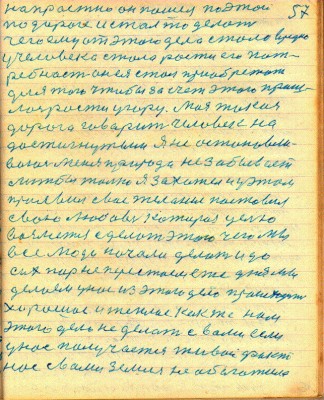 напрасно он пошел по этой 57
по дороге и стал то делать
чего ему от этого дела стало вредно
у человека стала рости его пот-
ребность он ея стал приобретать
для того чтобы за счет этого
рости у гору. Моя такая
дорога говорит человек на
достигнутым я не остановли-
ваюсь меня природа не забывает
только я захотел и у этом
проевил свое желание поставил
свою любовь которая целю
сделать этого чего мы
все люди начали делать и до
сих пор не престаем еже дня мы
делаем у нас из этого дело происходит
хорошое и теплое как же нам
этого дело не делать с вами если
у нас получается живой факт
нас с вами земля не обагатила